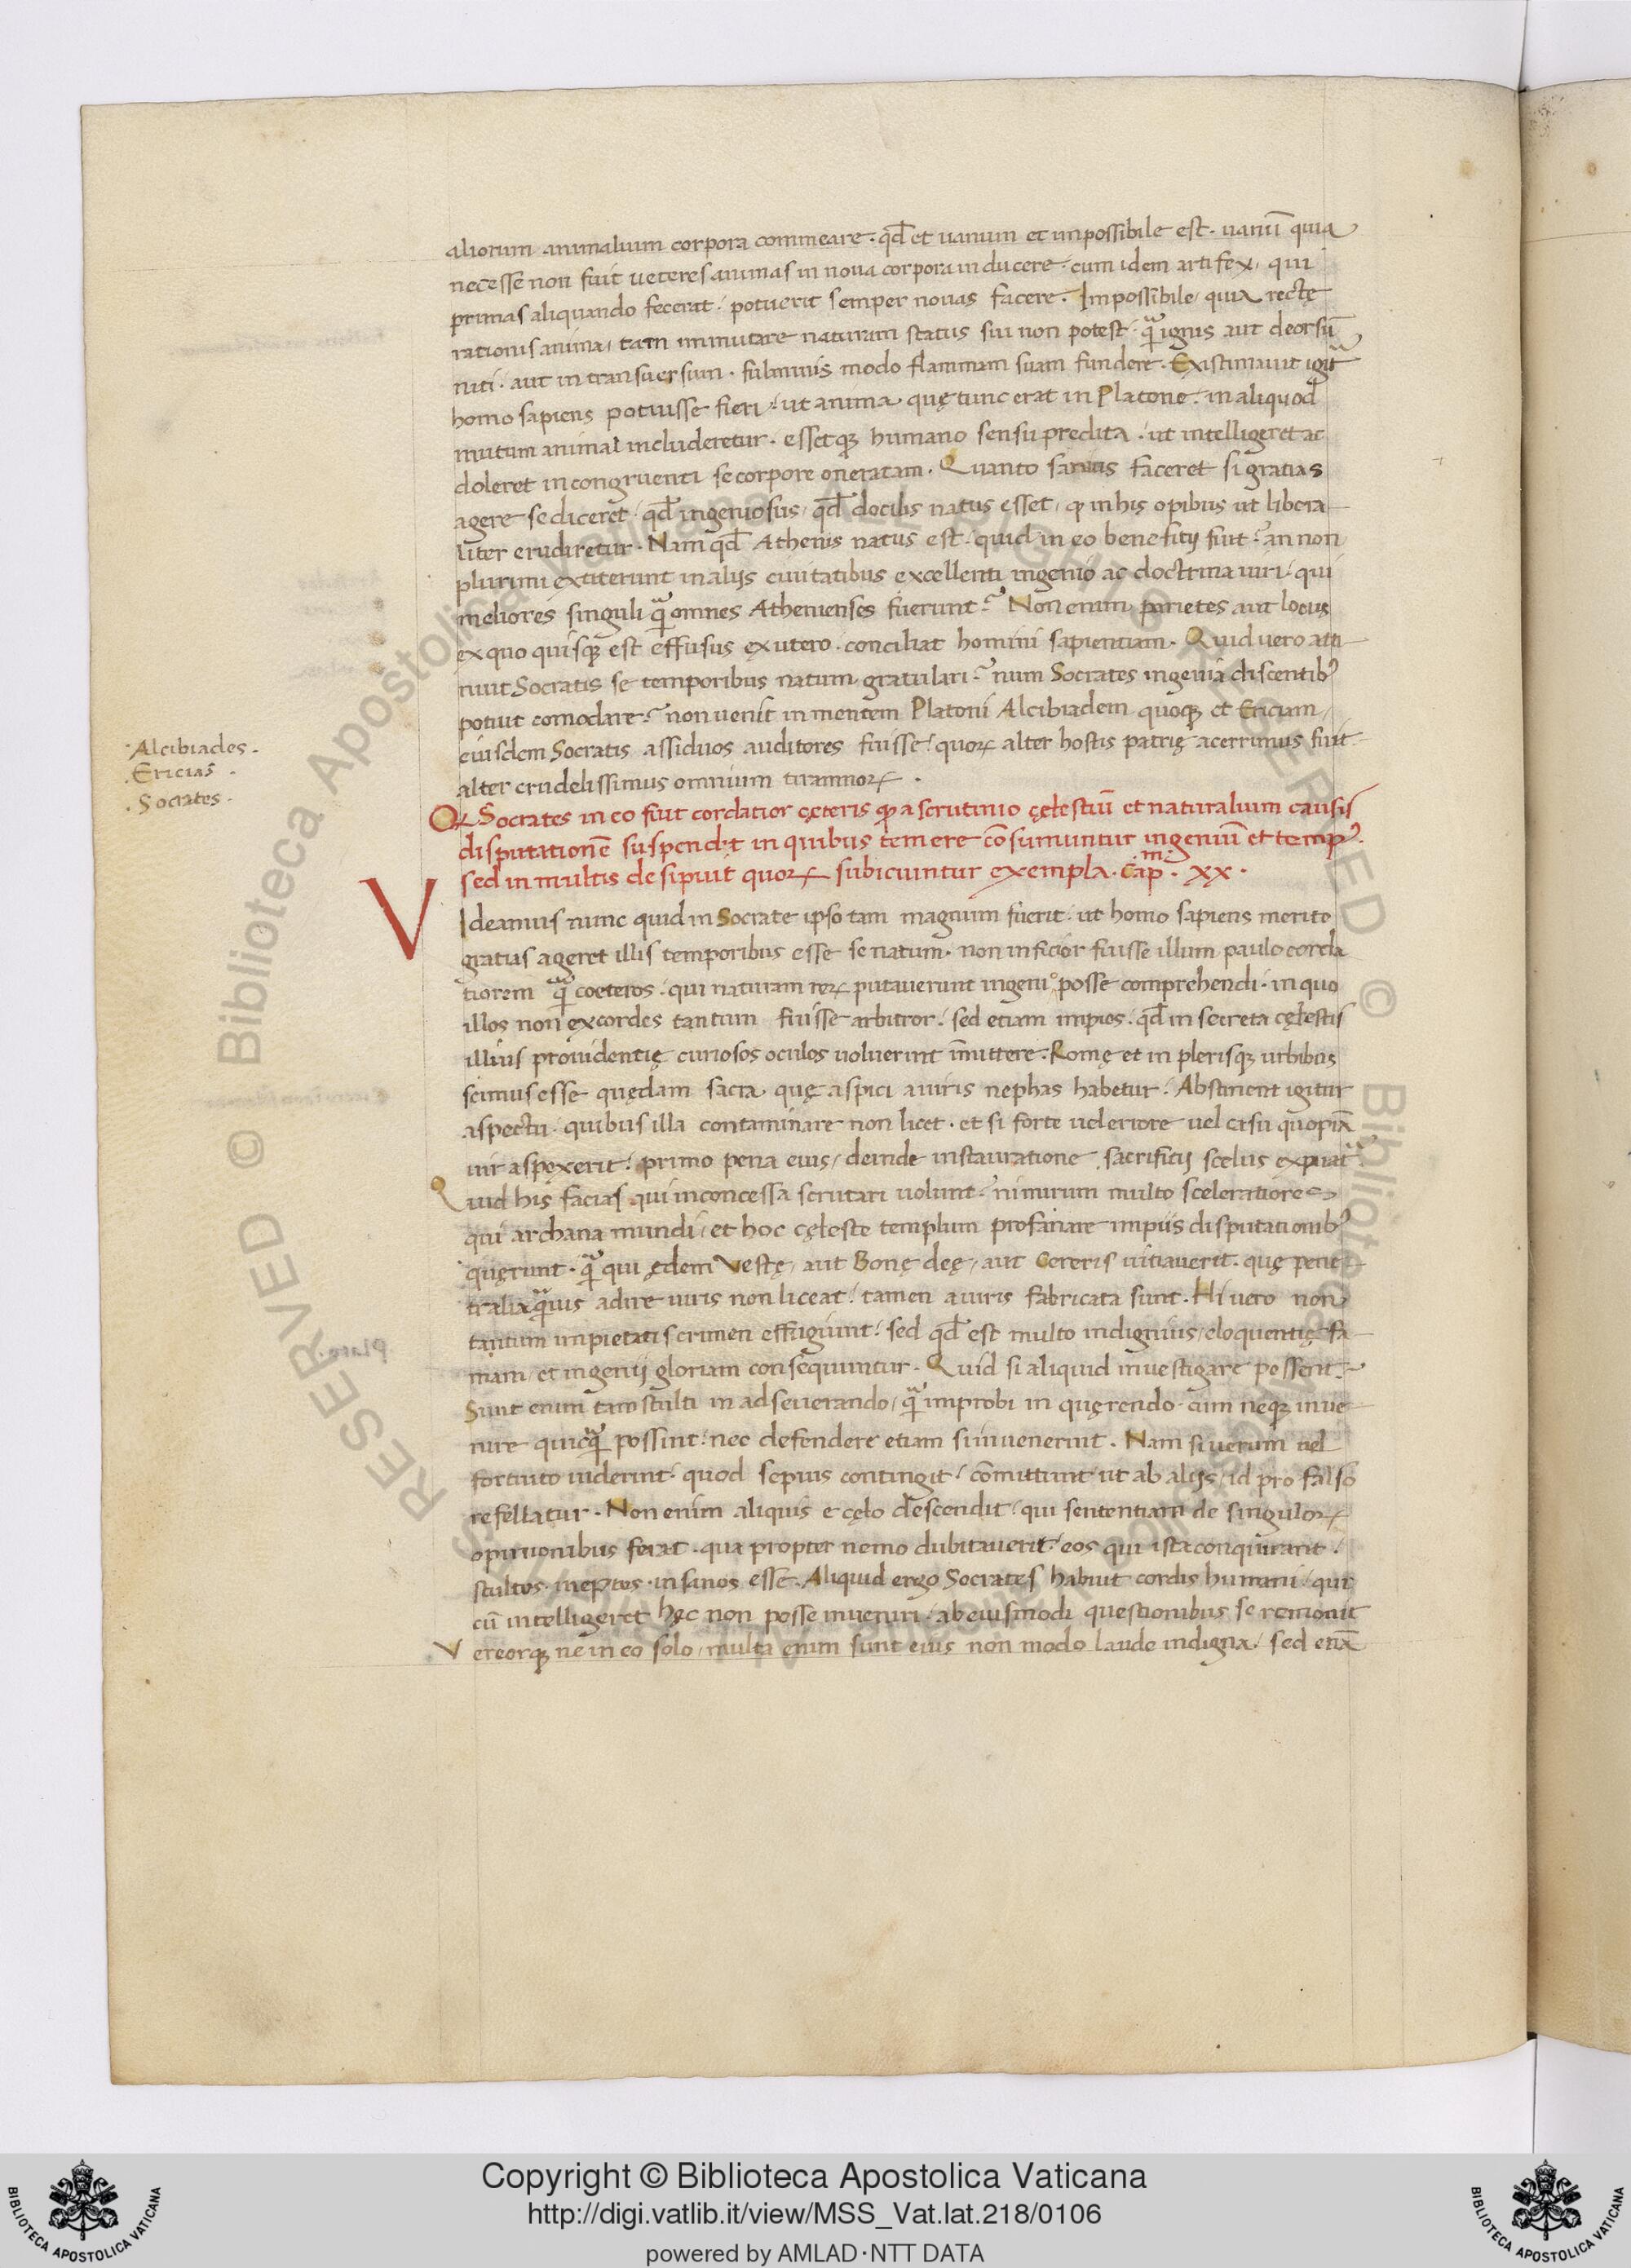 aliorum animalium corpora commeare · qd̄ et uanum et impossibile est · uanū quia
necesse non fuit ueteres animas in noua corpora inducere · cum idem artifex, qui
primas aliquando fecerat · potuerit semper nouas facere · Impossibile, quia rectę
rationis anima, tam immutare naturam status sui non potest · q̄ ignis aut deorsū
niti · aut in transuersum · fulminis modo flammam suam fundere · Existimauit igit̄
homo sapiens potuisse fieri · ut anima quę tunc erat in Platone · in aliquod
mutum animal includeretur · essetq; humano sensu predita · ut intelligeret ac
doleret incongruenti se corpore oneratam · Quanto sanius faceret si gratias
agere se diceret · qd̄ ingeniosus, qd̄ docilis natus esset, ꝙ in his opibus ut libera
liter erudiretur · Nam qd̄ Athenis natus est · quid in eo benefitij fuit? an non
plurimi extiterunt in alijs ciuitatibus excellenti ingenio ac doctrina uiri · qui
meliores singuli q̄ omnes Athenienses fuerunt? Non enim parietes aut locus
ex quo quisq; est effusus ex utero · conciliat homini sapientiam · Quid uero atti
nuit Socratis se temporibus natum gratulari? num Socrates ingenia discentib⁹
potuit comodare? non uenit in mentem Platoni Alcibiadem quoq; et Ericiam,
eiusdem Socratis assiduos auditores fuisse · quoꝝ alter hostis patrię acerrimus fuit
alter crudelissimus omnium tirannoꝝ ·
· Alcibiades ·
· Ericias ·
· Socrates ·
Qd Socrates in eo fuit cordatior cęteris ꝙ a scrutinio cęlestiū et naturalium causis
disputationē suspendit in quibus temere cōsumuntur ingeniū et temp⁹
sed in multis desipuit quoꝝ subiciuntur exempla · Capᵐ · xx ·
V Ideamus nunc quid in Socrate ipso tam magnum fuerit · ut homo sapiens merito
gratias ageret illis temporibus esse se natum · non inficior fuisse illum paulo corda
tiorem q̄ coeteros · qui naturam reꝝ putauerunt ingenio posse comprehendi · in quo
illos non excordes tantum fuisse arbitror · sed etiam impios · qd̄ in secreta cęlestis
illius prouidentię curiosos oculos uoluerint īmittere · Romę et in plerisq; urbibus
scimus esse quędam sacra quę aspici a uiris nephas habetur · Abstinent igitur
aspectu · quibus illa contaminare non licet · et si forte uel errore uel casu quopiā
uir aspexerit · primo pena eius, deinde instauratione sacrifitij scelus expiat̄
Quid his facias qui inconcessa scrutari uolunt? nimirum multo sceleratiores
qui archana mundi, et hoc cęleste templum profanare impiis disputationib⁹
quęrunt · q̄ qui ędem Vestę, aut Bonę deę, aut Cereris uitiauerit · quę pene
tralia q̄uis adire uiris non liceat · tamen a uiris fabricata sunt · Hi uero non
tantum impietatis crimen effugiunt · sed qd̄ est multo indignius, eloquentię fa
mam, et ingenij gloriam consequuntur · Quid si aliquid inuestigare possent?
Sunt enim tam stulti in adseuerando, q̄ improbi in quęrendo · cum neq; inue
nire quicq̄ possint · nec defendere etiam si inuenerint · Nam si uerum uel
fortuito uiderint · quod sepius contingit · cōmittunt ut ab alijs, id pro falso
refellatur · Non enim aliquis e cęlo descendit, qui sententiam de singuloꝝ
opinionibus ferat · qua propter nemo dubitauerit · eos qui ista conquirant ·
stultos · ineptos · insanos esse · Aliquid ergo Socrates habuit cordis humani, qui
cū intelligeret hęc non posse inueniri · ab eiusmodi questionibus se remouit
Vereorq; ne in eo solo, multa enim sunt eius non modo laude indigna, sed etiā
Copyright © Biblioteca Apostolica Vaticana
http://digi.vatlib.it/view/MSS_Vat.lat.218/0106
powered by AMLAD·NTT DATA
BIBLIOTECA APOSTOLICA VATICANA
BIBLIOTECA APOSTOLICA VATICANA